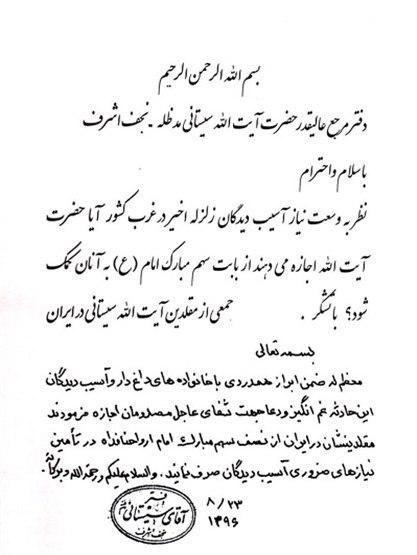 بسم الله الرحمن الرحیم
دفتر مرجع عالیقدر حضرت آیت الله سیستانی مدظله - نجف اشرف
با سلام و احترام
نظر به وسعت نیاز آسیب دیدگان زلزله اخیر در غرب کشور آیا حضرت
آیت الله اجازه می دهند از بابت سهم مبارک امام (ع) به آنان کمک
شود؟ با تشکر . جمعی از مقلدین آیت الله سیستانی در ایران
بسمه تعالی
معظم له ضمن ابراز همدردی با خانواده های داغ دار و آسیب دیدگان
این حادثه غم انگیز و دعا جهت شفای عاجل مصدومان اجازه فرمودند
مقلدینشان در ایران از نصف سهم مبارک امام ارواحنا فداه در تأمین
نیازهای ضروری آسیب دیدگان صرف نمایند. والسلام علیکم و رحمة الله و برکاته
۸/۲۳
۱۳۹۶
دفتر
آقای سیستانی
نجف اشرف